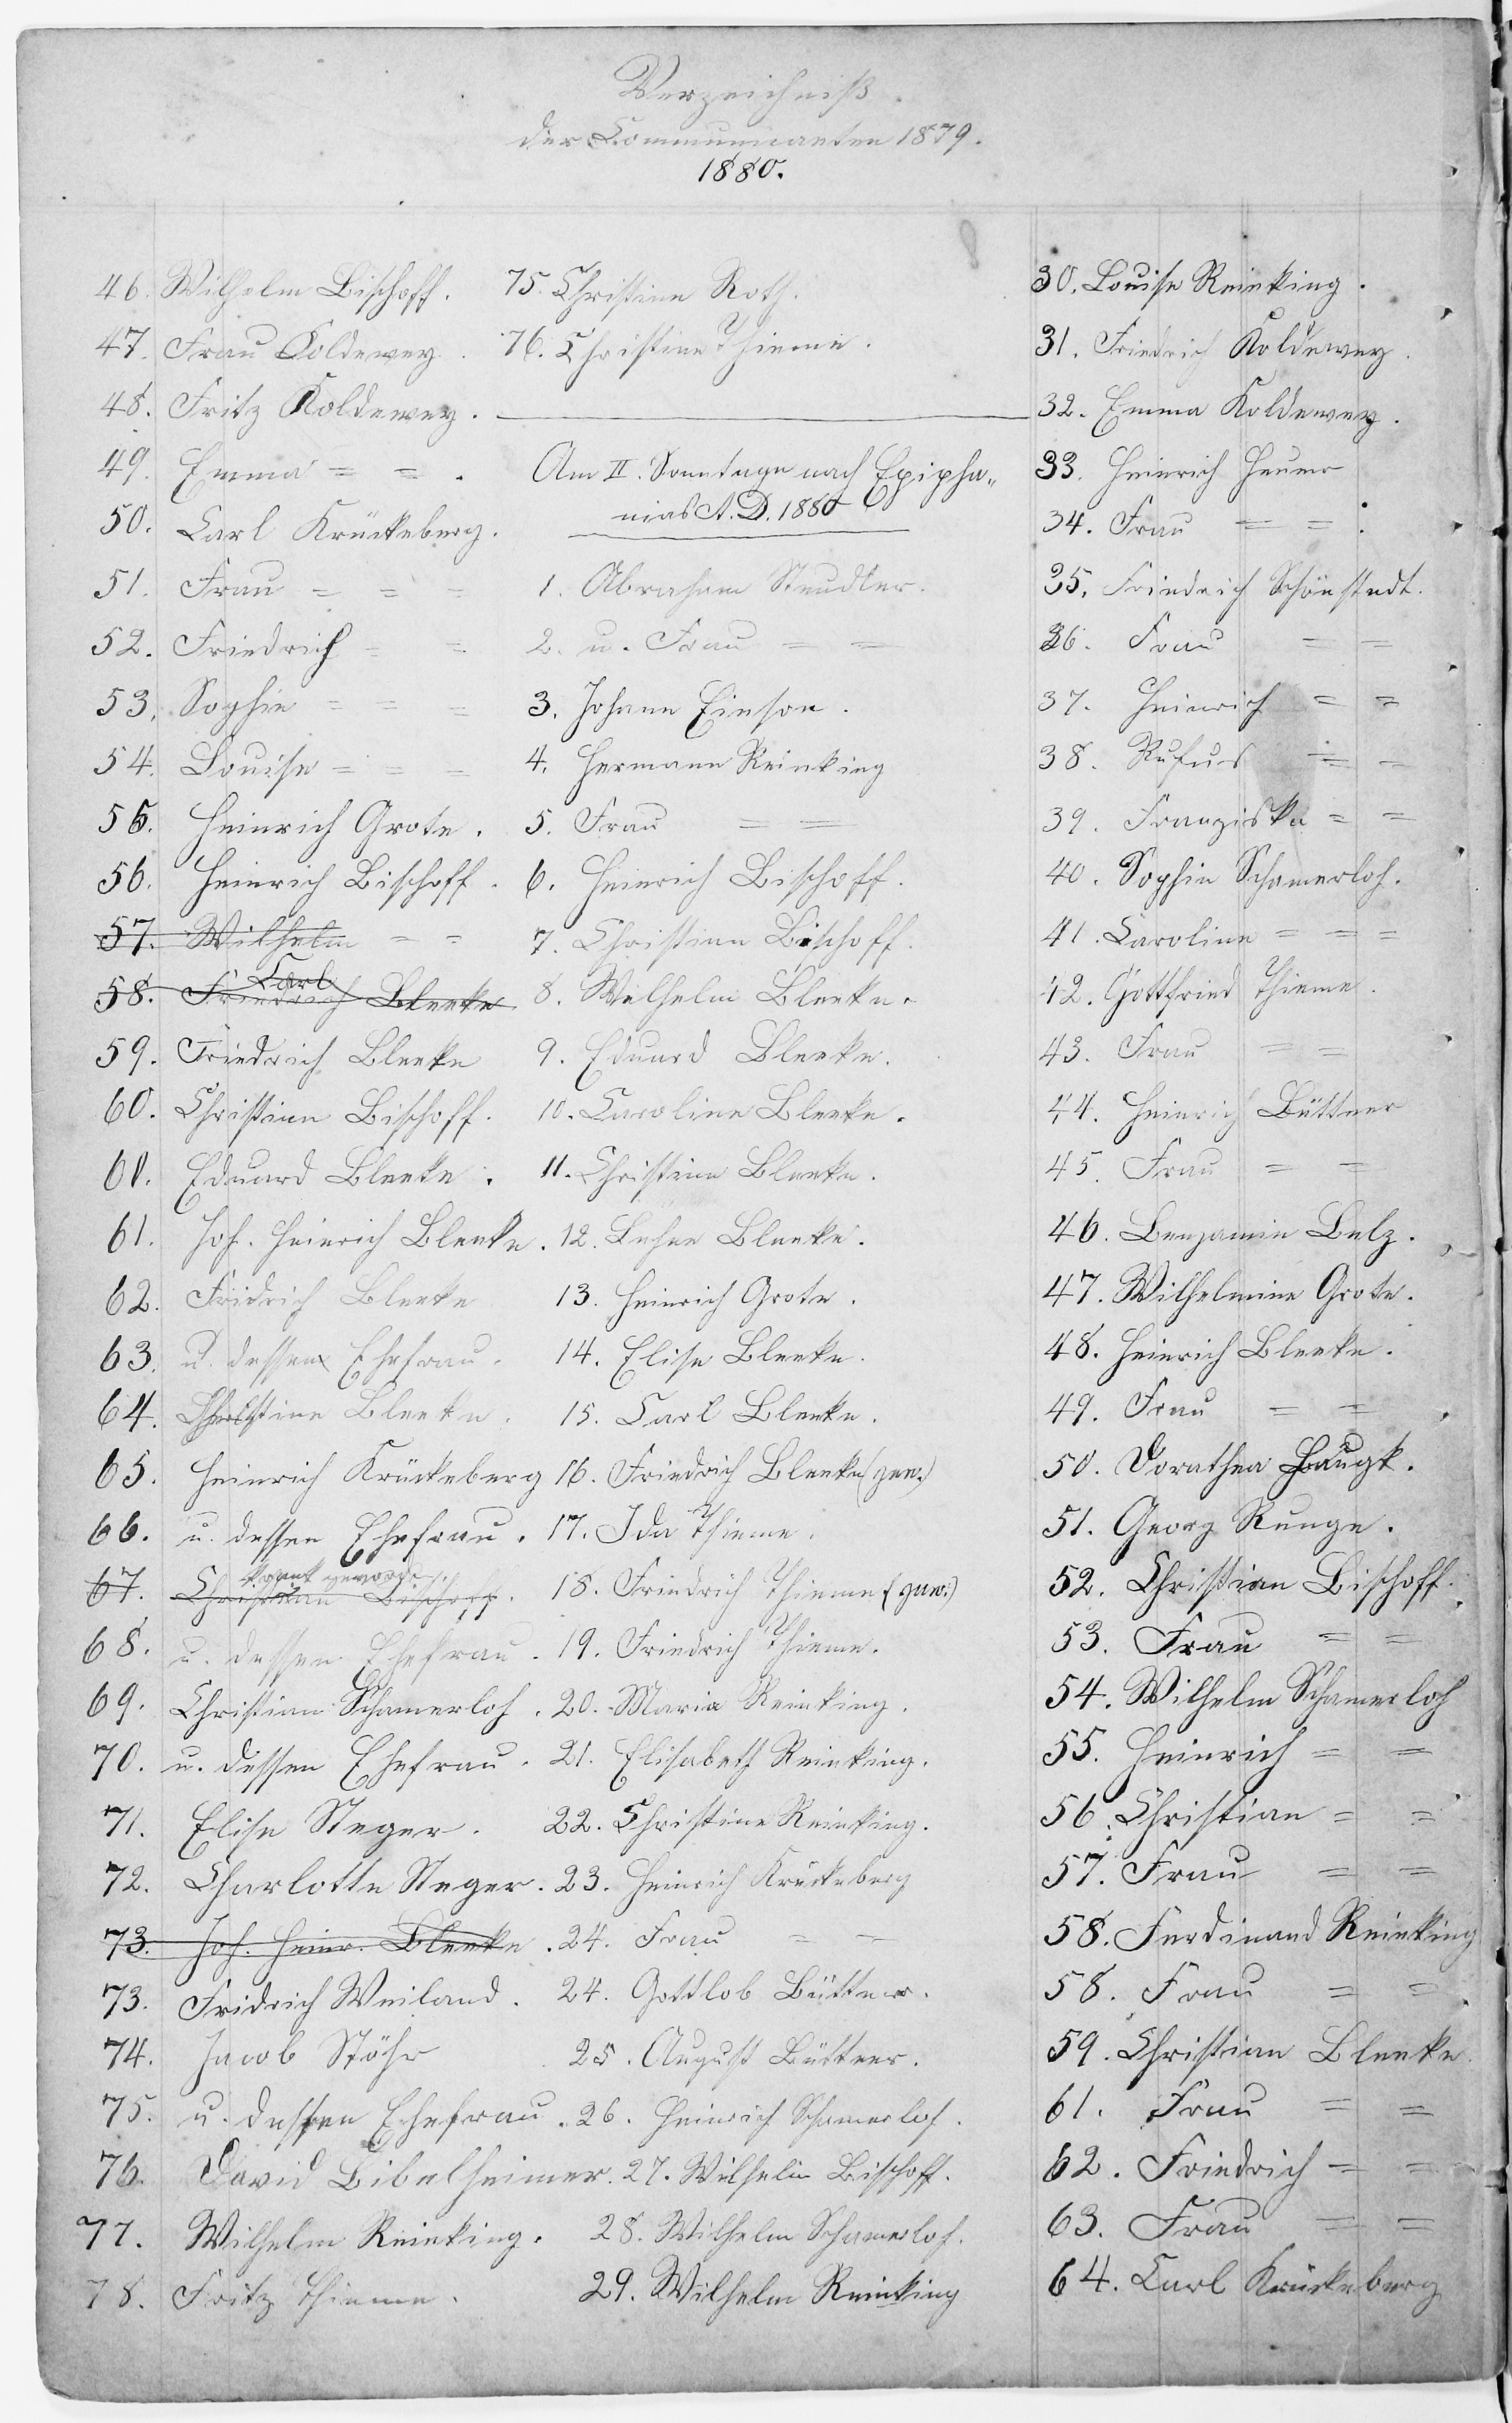 Verzeichniß
der Communicanten 1879.
1880.
46. Wilhelm Bischoff.
47. Frau Koldewey.
48. Fritz Koldewey.
49. Emma = = .
50. Carl Krückeberg.
51. Frau = = =
52. Friedrich = =
53. Sophie = = =
54. Louise = = =
55. Heinrich Grote.
56. Heinrich Bischoff.
57. Wilhelm = =
Carl
58. Friedrich Bleeke
59. Friedrich Bleeke
60. Christian Bischoff.
60. Eduard Bleeke.
61. Joh. Heinrich Bleeke.
62. Fridrich Bleeke
63. u. dessen Ehefrau.
64. Christine Bleeke.
65. Heinrich Krückeberg
66. u. dessen Ehefrau.
krank geworden.
67. Christian Bischoff.
68. u. dessen Ehefrau.
69. Christian Schamerloh.
70. u. dessen Ehefrau.
71. Elise Steger.
72. Charlotte Steger.
73. Joh. Heinr. Bleeke.
73. Fridrich Weiland.
74. Jacob Stöhr
75. u. dessen Ehefrau.
76. David Bibelheimer.
77. Wilhelm Reinking.
78. Fritz Thieme.
75. Christine Roth.
76. Christine Thieme.
Am II. Sonntage nach Epipha„
nias A. D. 1880
1. Abraham Steudler.
2. u. Frau = =
3. Johann Einson.
4. Hermann Reinking
5. Frau = =
6. Heinrich Bischoff.
7. Christian Bischoff.
8. Wilhelm Bleeke.
9. Eduard Bleeke.
10. Caroline Bleeke.
11. Christine Bleeke.
12. Lehne Bleeke.
13. Heinrich Grote.
14. Elise Bleeke.
15. Carl Bleeke.
16. Friedrich Bleeke (jun.)
17. Ida Thieme.
18. Friedrich Thieme (jun.)
19. Friedrich Thieme.
20. Maria Reinking.
21. Elisabeth Reinking.
22. Christine Reinking.
23. Heinrich Krückeberg
24. Frau = =
24. Gottlob Büttner.
25. August Büttner.
26. Heinrich Schamerloh.
27. Wilhelm Bischoff.
28. Wilhelm Schamerloh.
29. Wilhelm Reinking
30. Louise Reinking.
31. Friedrich Koldewey.
32. Emma Koldewey.
33. Heinrich Heuer
34. Frau = = .
35. Friedrich Schönstedt.
36. Frau = =
37. Heinrich = =
38. Rufus = =
39. Franziska = =
40. Sophie Schamerloh.
41. Caroline = = =
42. Gottfried Thieme.
43. Frau = =
44. Heinrich Büttner
45. Frau = =
46. Benjamin Belz.
47. Wilhelmine Grote.
48. Heinrich Bleeke.
49. Frau = = .
50. Dorathea Haugk.
51. Georg Runge.
52. Christian Bischoff.
53. Frau = =
54. Wilhelm Schamerloh
55. Heinrich = =
56. Christian = =
57. Frau = =
58. Ferdinand Reinking
58. Frau = =
59. Christian Bleeke.
61. Frau = =
62. Friedrich = =
63. Frau = =
64. Carl Krückeberg